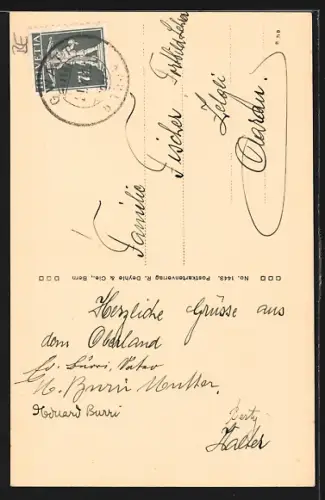 HELVETIA
7½
Familie
Fischer
Zelgli
Aarau.
No. 1448. Postkartenverlag R. Deyhle & Cie., Bern
Herzliche Grüsse aus
dem Oberland
Ed. Burri, Vater
M. Burri Mutter.
Eduard Burri
Walter